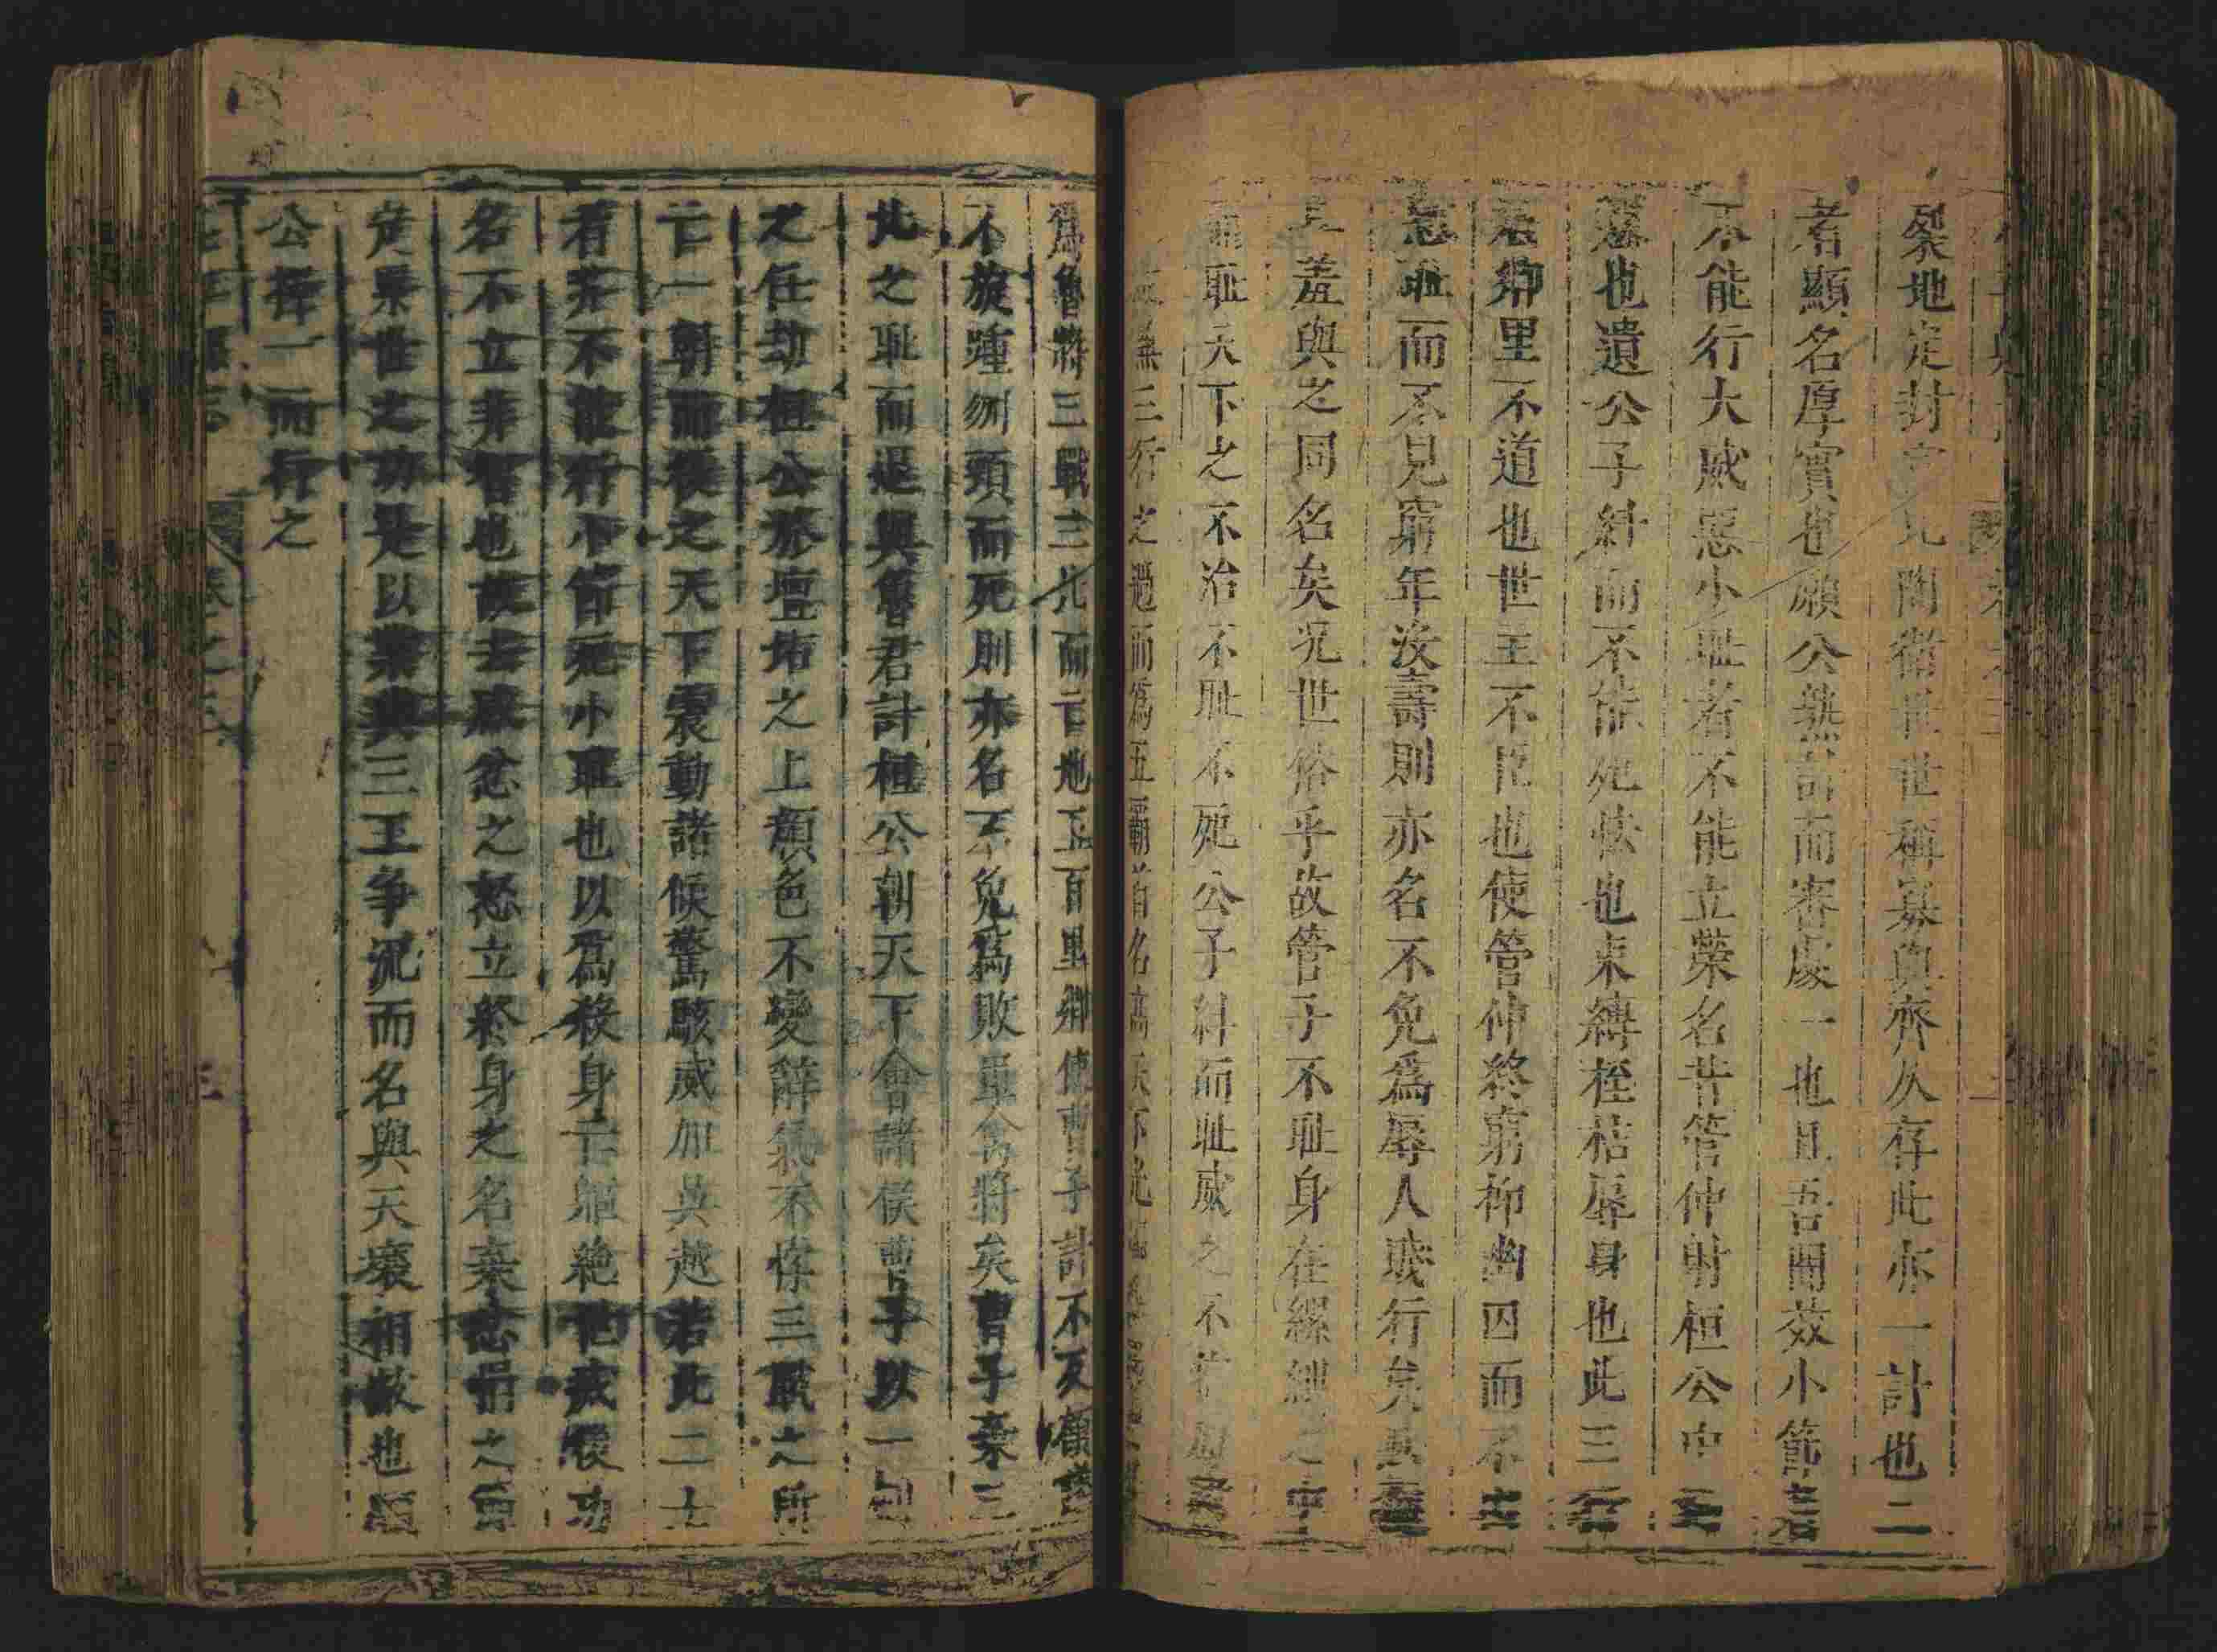 裂地定封富比陶衛世世稱寡與齊久存此亦一計也二
者顯名厚實也願公熟計而審處一也且吾聞效小節者
不能行大威惡小耻者不能立榮名昔管仲射桓公中
篡也遺公子糾而不能死怯也束縛桎梏辱身也此三行
鄉里不道也世主不臣也使管仲終窮抑幽囚而不
耻而不見窮年沒壽則亦名不免爲辱人賤行矣
羞與之同名矣况世俗乎故管子不耻身在縲紲之中
耻天下之不治不耻不死公子糾而耻威之不
三行之過而爲五霸首名高天下光
爲魯將三戰三北而亡地五百里鄉使曹子計不反顧議
不旋踵刎頸而死則亦名不免爲敗軍禽將矣曹子棄三
北之耻而退與魯君計桓公朝天下會諸侯曹子以一劍
之任劫桓公於壇坫之上顔色不變辭氣不悖三戰之所
亡一朝而復之天下震動諸侯驚駭威加吳越若此二士
者非不能行小節死小耻也以爲殺身亡軀絶世滅後功
名不立非智也故去感忿之怒立終身之名棄忿悁之節
定累世之功是以業與三王争流而名與天壤相敝也願
公擇一而行之